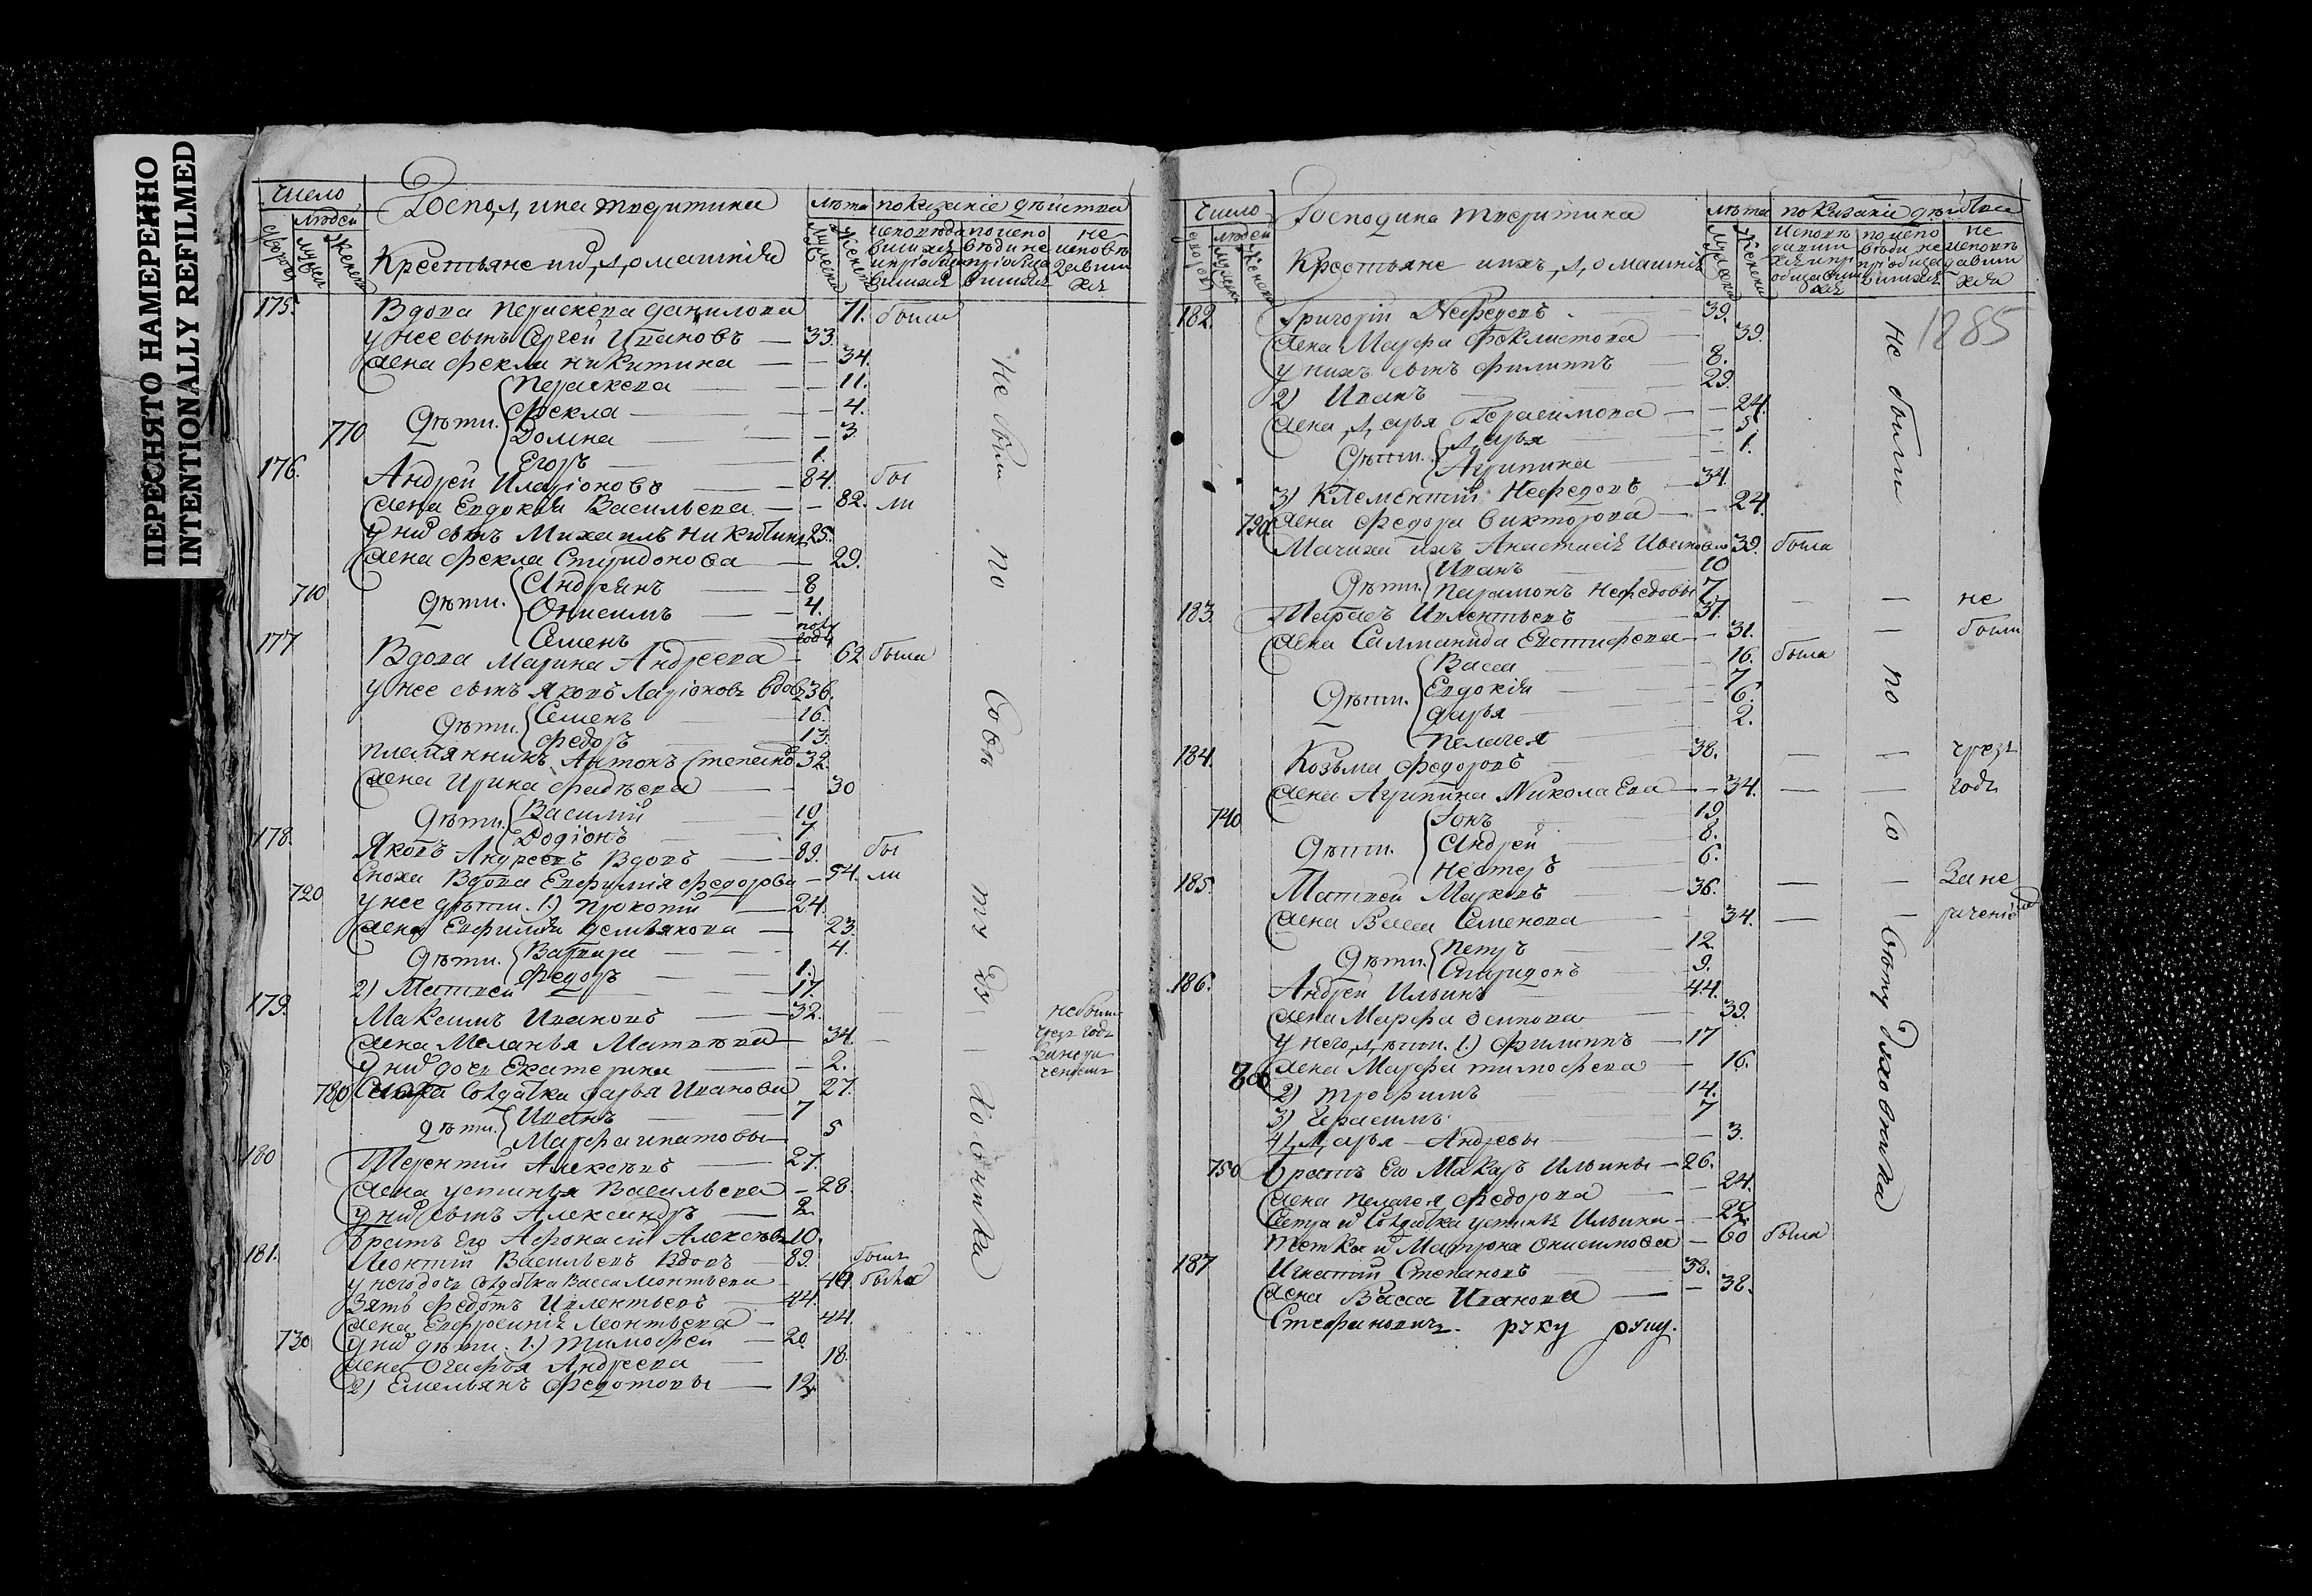 ПЕРЕСНЯТО НАМЕРЕННО
INTENTIONALLY REFILMED
Число
людей
Господина
Крестьяне
лѣта показаніе дѣйства
175. Вдова Параскева Данилова 71. были
у нее сынъ Сергей Ивановъ 33.
жена Фекла Никитина 34.
Параскева 11.
Дѣти. Фекла 4.
770 Домна 3.
Егоръ 1.
176. Андрей Иларіоновъ 84. бы
жена Евдокія Васильева 82. ли
у них сынъ Михаилъ Никитинъ 25.
жена Фекла Спиридонова 29.
710 Андреянъ 8
Дѣти. Онисимъ 4.
Семенъ полугоду
177 Вдова Марина Андреева 62 была
у нее сынъ Яковъ Ларіоновъ вдовъ 36.
Дѣти. Семенъ 16.
Федоръ 13.
племянникъ Антонъ Степановъ 32.
жена Ирина Фадѣева 30
Дѣти. Василій 10
Родіонъ 7.
178. Яковъ Андреевъ Вдовъ 89. бы
Сноха Вдова Евфимія Федорова 54. ли
720 у нее дѣти. 1.) Прокопій 24.
жена Евфимія Демьянова 23.
Дѣти. Варвара 4.
Федоръ 1.
2) Матвей 17.
179. Максимъ Ивановъ 32. не были
жена Меланья Матвѣева 34. чрезъ годъ
у них дочь Екатерина 2.
780 Солдатка Дарья Иванова 27.
Дѣти. Иванъ 7
Марфа 5
180 Терентій Алексѣевъ 27.
жена Устинья Васильева 28.
у них сынъ Александръ 2
братъ его Афонасій Алексѣевъ 10.
181. Леонтій Васильевъ Вдовъ 89. былъ
у него дочь Солдатка Васса Леонтьева 49. была
Зять Федотъ Иплентьевъ 44.
жена Евфросинія Леонтьева 44.
730 у них дѣти. 1.) Тимофей 20.
жена Огафья Андреева 18.
2) Емельянъ Федотовы 12
не были по
Число
людей
Господина
Крестьяне ихъ домашніе
лѣта показаніе дѣйства
1285
182. Григорій Нефедовъ 39.
жена Марфа Феклистова 39.
у нихъ сынъ Филиппъ 8.
2) Иванъ 29.
жена Дарья Герасимова 24.
Дѣти. Дарья 5.
Агрипина 1.
3) Клементій Нефедовъ 34.
790 жена Федора Викторова 24.
Мачиха ихъ Анастасія Иванова 39. была
Дѣти. Иванъ 10
Парамонъ Нефедовы 7.
183. Тарасъ Иплентьевъ 37. не
жена Саламанида Евстифеева 31. были
Васса 16. была
Дѣти. Евдокія 7
Дарья 6.
Пелагея 2.
184. Козьма Федоровъ 38. чрезъ
жена Агрипина Николаева 34. годъ
740 Іонъ 19.
Дѣти. Андрей 8.
Нестеръ 6.
185. Матвей Марковъ 36. За не
жена Васса Семенова 34. раченіемъ
Дѣти. Петръ 12.
Спиридонъ 9.
186. Андрей Ильинъ 44.
жена Марфа Осипова 39.
у него дѣти. 1.) Филиппъ 17
жена Марфа Тимофеева 16.
2) Трофимъ 14.
3) Герасимъ 7
4) Дарья Андревы 3.
750 братъ его Макаръ Ильинъ 26.
жена Пелагея Федорова 24.
Сестра их Солдатка Устинья Ильина 22.
Тетка их Матрона Онисимова 60 была
187 Игнатій Степановъ 38.
жена Васса Иванова 38.
не были по со вѣту духовника